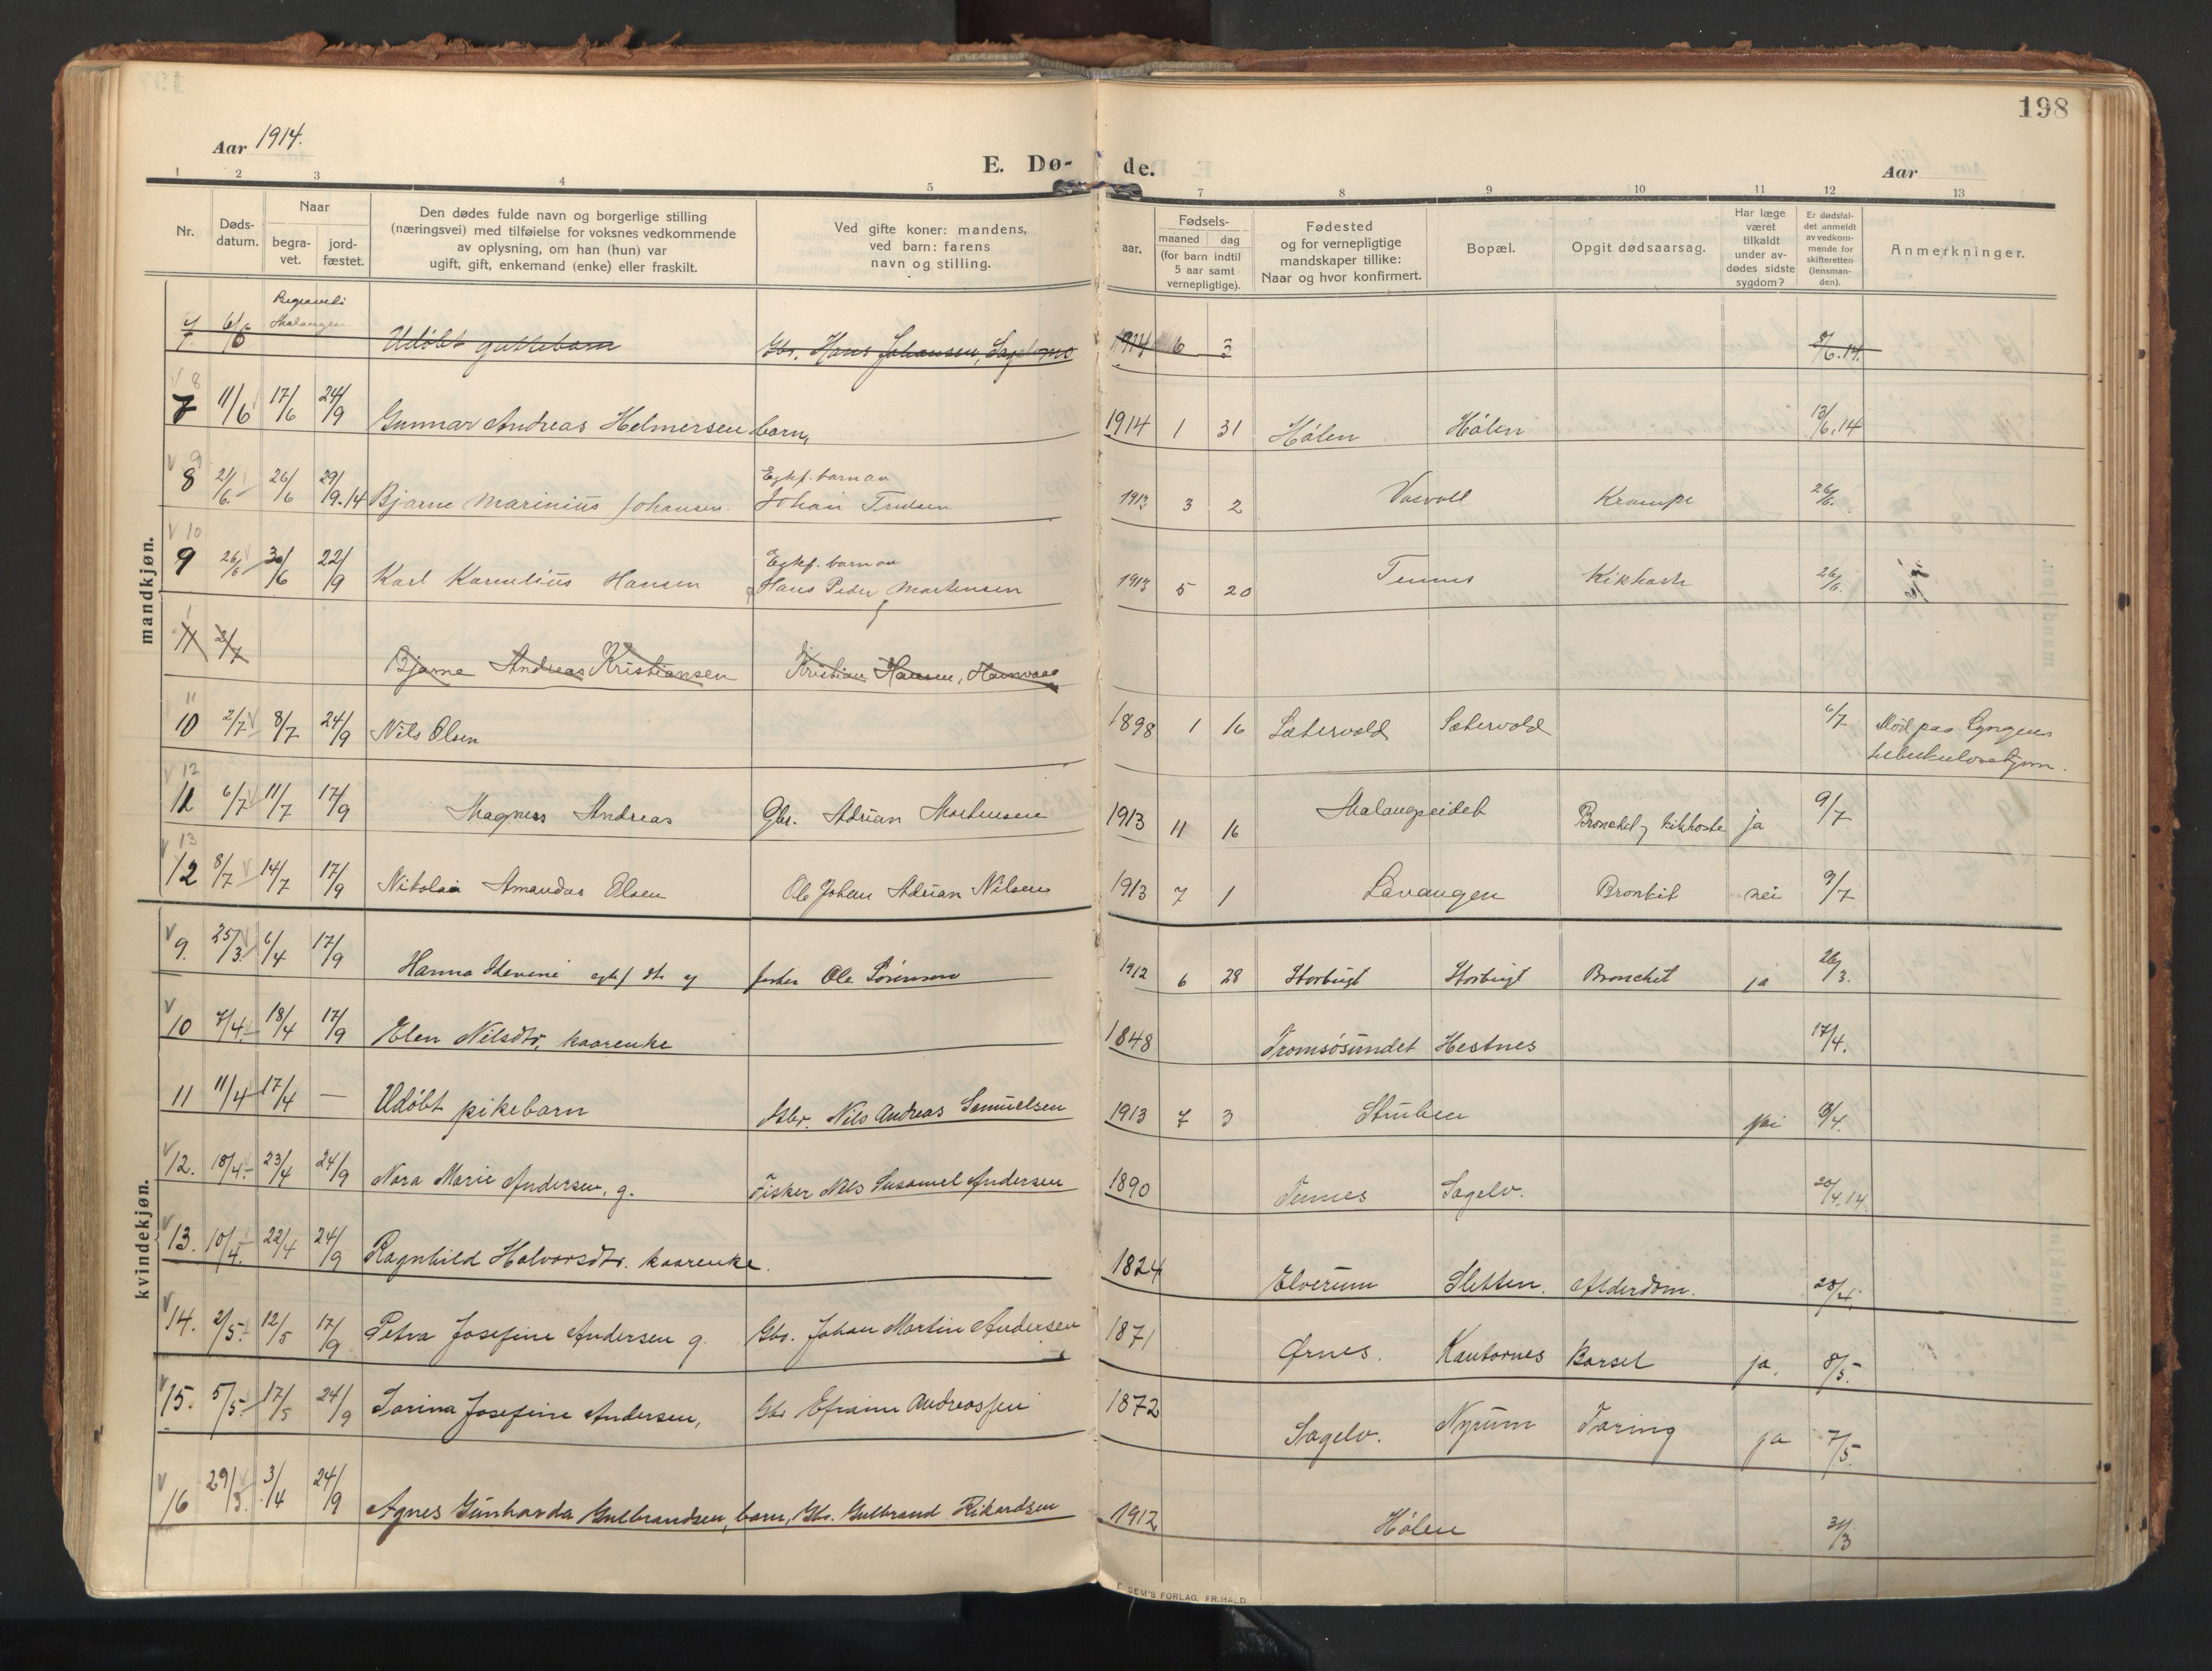 198
Aar 1914.
E. Dø- de.
Aar
1 2 3 4 5 7 8 9 10 11 12 13
Nr.
Døds-
datum.
Naar
begra-
vet.
jord-
fæstet.
Den dødes fulde navn og borgerlige stilling
(næringsvei) med tilføielse for voksnes vedkommende
av oplysning, om han (hun) var
ugift, gift, enkemand (enke) eller fraskilt.
Ved gifte koner: mandens,
ved barn: farens
navn og stilling.
Fødsels-
aar.
maaned dag
(for barn indtil
5 aar samt
vernepligtige).
Fødested
og for vernepligtige
mandskaper tillike:
Naar og hvor konfirmert.
Bopæl.
Opgit dødsaarsag.
Har læge
været
tilkaldt
under av-
dødes sidste
sygdom?
Er dødsfal-
det anmeldt
av vedkom-
mende for
skifteretten
(lensman-
den).
Anmerkninger.
mandkjøn.
6/6 Begravet i Malangen Udøbt guttebarn Gbr. Hans Johansen, 1914 6 3 /6.14.
8
7 11/6 17/6 24/9 Gunnar Andreas Helmersen barn, 1914 1 31 Hølen Hølen 13/6.14
9
8 21/6 26/6 29/9.14 Bjarne Marinius Johansen. Egtf. barn av
Johan Trulsen 1913 3 2 Vasvoll Krampe 26/6.
10
9 26/6 30/6 22/9 Karl Kornelius Hansen Egtf. barn av
Hans Peder Martensen 1913 5 20 Tennes Kikhoste 26/6.
11 2/7 Bjarne Andreas Kristiansen Kristian Hansen,
11
10 2/7 8/7 24/9 Nils Olsen 1898 1 16 Sætervold Sætervold 6/7 Død paa Lyngens
tuberkulosehjem.
12
11 6/7 11/7 17/9 Magnus Andreas Gbr. Adrian Mortensen 1913 11 16 Malangseidet Bronchit og kikhoste ja 9/7
13
12 8/7 14/7 17/9 Nikolai Amandus Olsen Ole Johan Adrian Nilsen 1913 7 1 Lavangen Bronkit nei 9/7
kvindekjøn.
9. 25/3. 6/4 17/9 Hanna egtf dtr af fisker Ole Sørensen 1912 6 28 Storbugt Storbugt Bronchit ja 26/3.
10 7/4. 18/4 17/9 Elen Nilsdtr. kaarenke 1848 Tromsøsundet Hestnes 17/4.
11 11/4 17/4 — Udøbt pikebarn Gbr. Nils Andreas Samuelsen 1913 7 3 Stuben nei /4.
12. 18/4. 23/4 24/9 Nora Marie Andersen, g. Fisker Nils Andersen 1890 Tennes Sagelv. 20/4.14.
13. 10/4. 22/4 24/9 Ragnhild Halvorsdtr. kaarenke. 1824 Elverum Sletten. Alderdom. 20/4.
14. 2/5. 12/5 17/9 Petra Josefine Andersen g. Gbr. Johan Martin Andersen 1871 Ørnes. Kantornes Barsel ja. 8/5.
15. 5/5. 17/5 24/9 Sarina Josefine Andersen, Gbr Efraim Andreassen 1872 Sagelv. Nyrum Tæring ja 7/5.
16 29/3. 3/4 24/9 Agnes Gunharda Gulbrandsen, barn, Gbr. Gulbrand Rikardsen 1912 Hølen 31/3
DEM'S FORLAG, FR.HALD